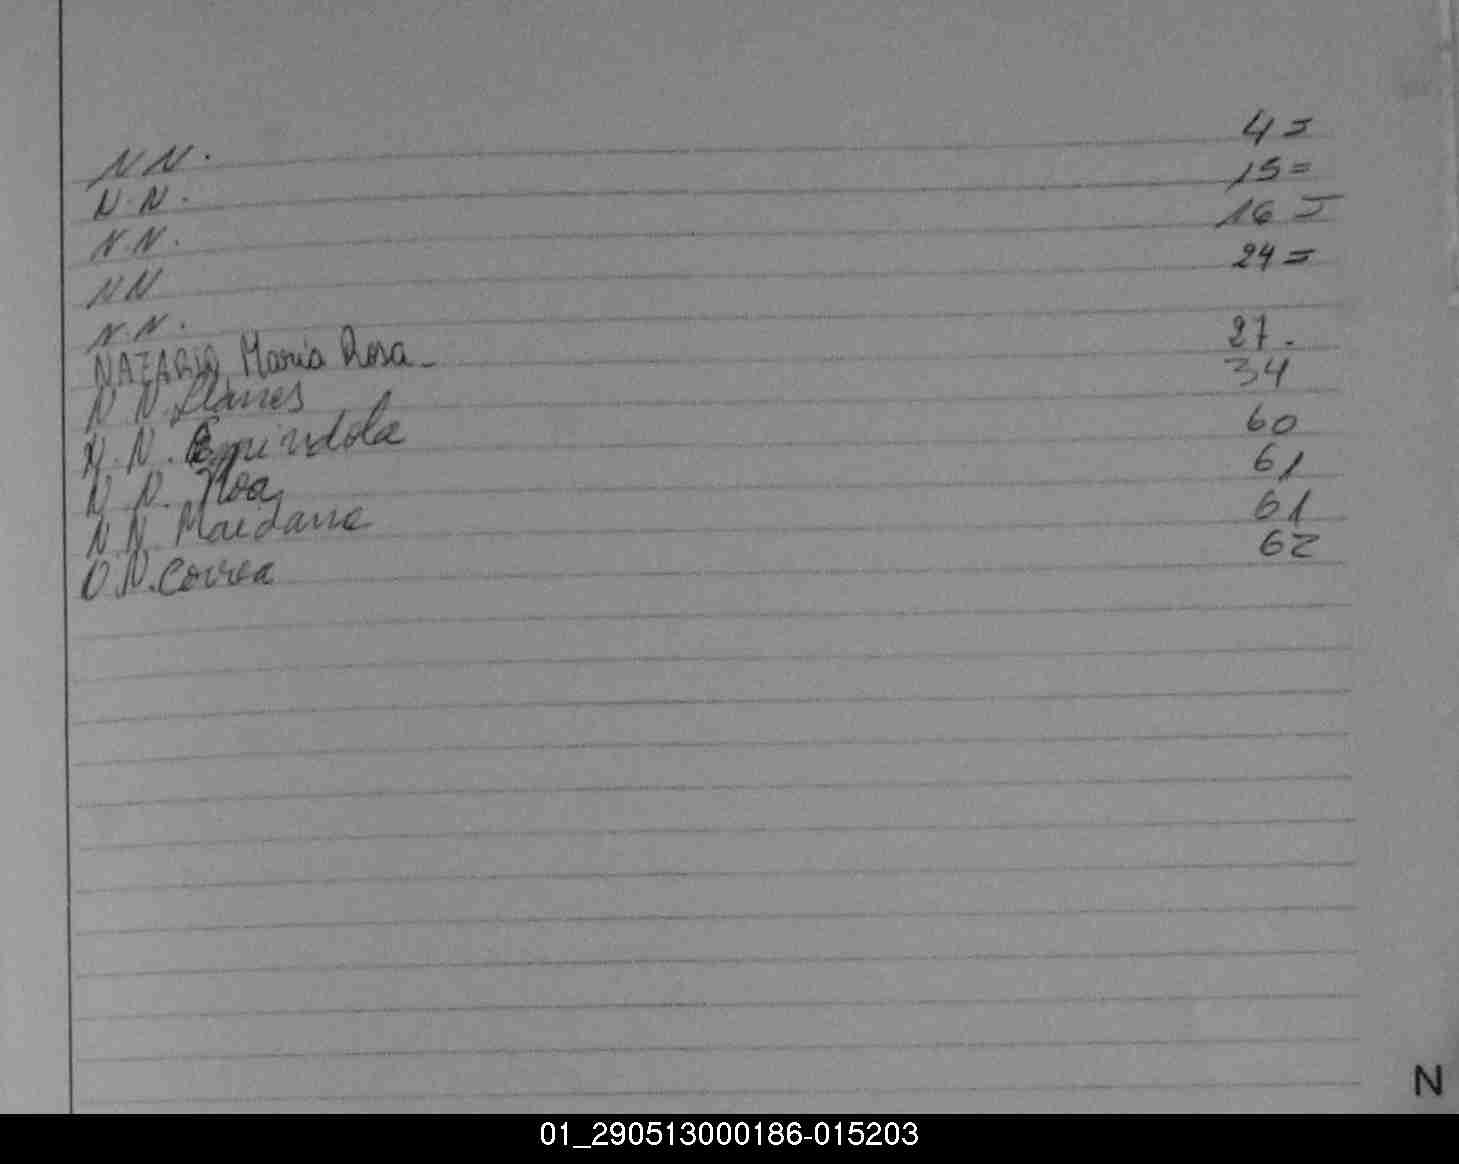 N N. 4=
N. N. 15=
N. N. 16=
N N 24=
N. N.
NAZARIO Maria Rosa - 27.
N N Llanes 34
N. N. Espindola 60
N N. Noa 61
N N Maidana 61
N. Correa 62
N
01_290513000186-015203